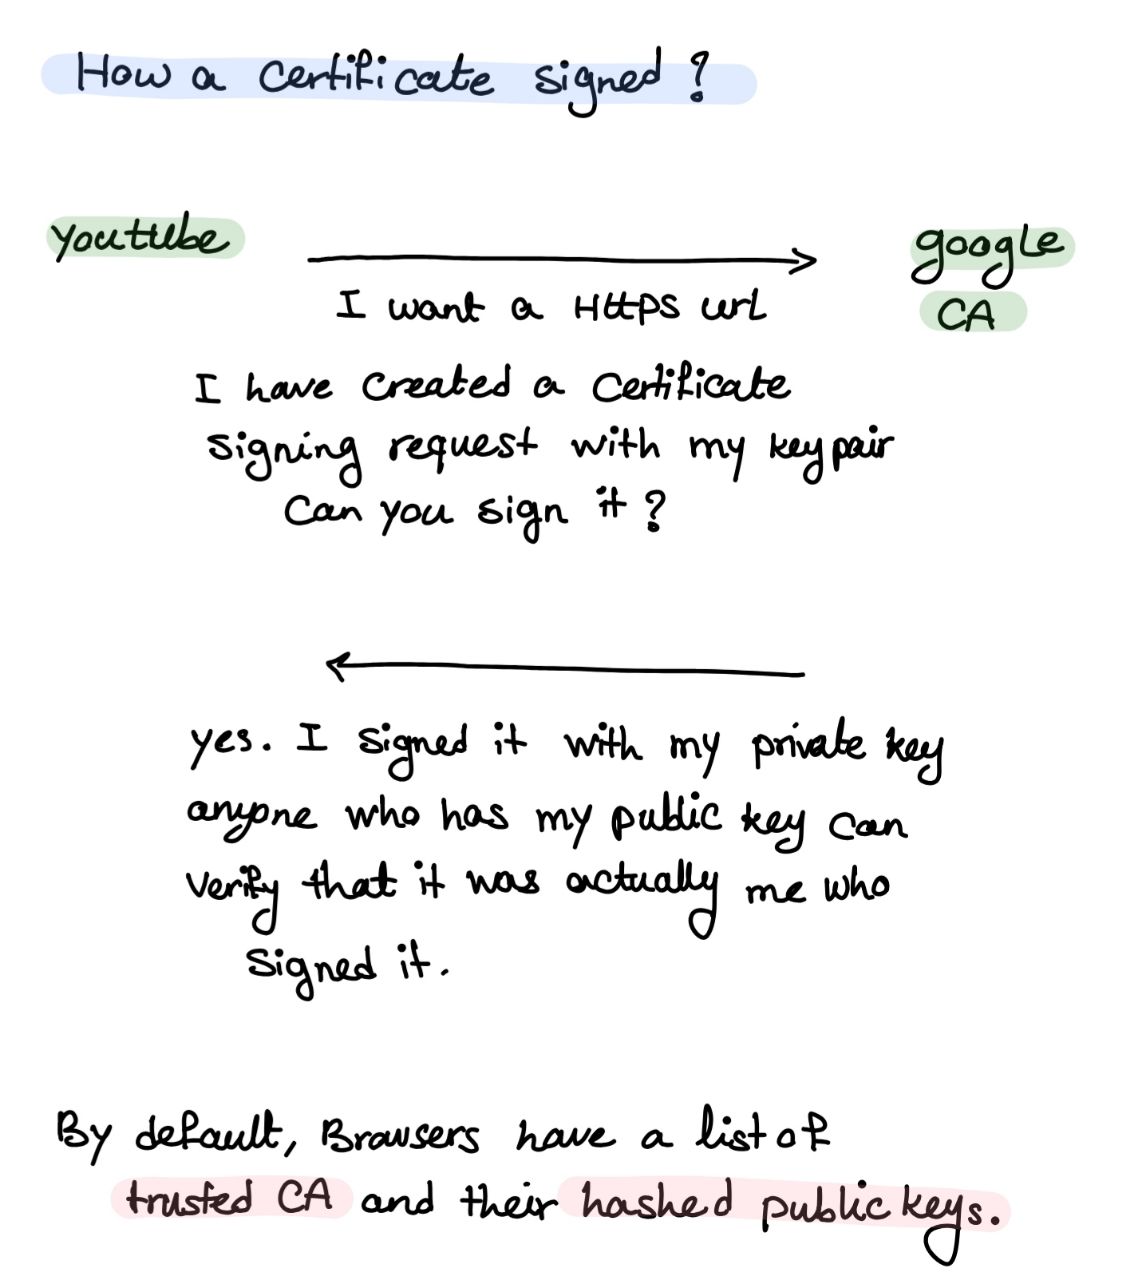 How a certificate signed ?
youtube
google
CA
I want a HttpS url
I have created a certificate
signing request with my key pair
Can you sign it ?
yes. I signed it with my private key
anyone who has my public key can
verify that it was actually me who
signed it.
By default, Browsers have a list of
trusted CA and their hashed public keys.